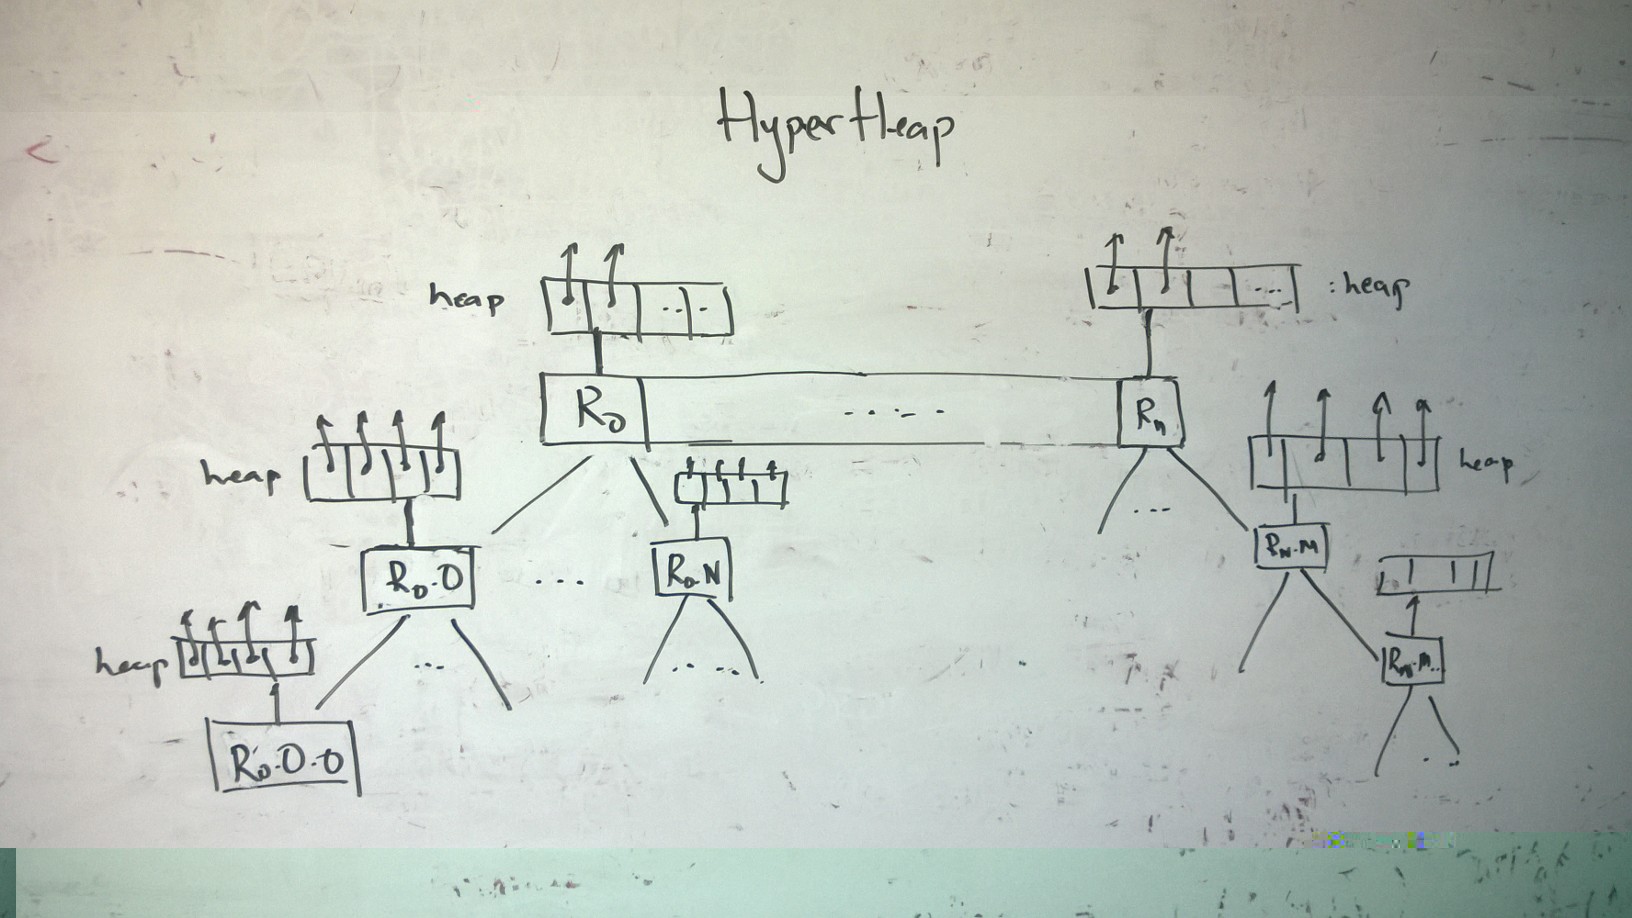 HyperHeap
heap
: heap
R₀
.....
Rₙ
heap
heap
...
R₀.0
...
R₀.N
R_N.M
heap
...
.....
R_N.M..
R₀.0.0
...